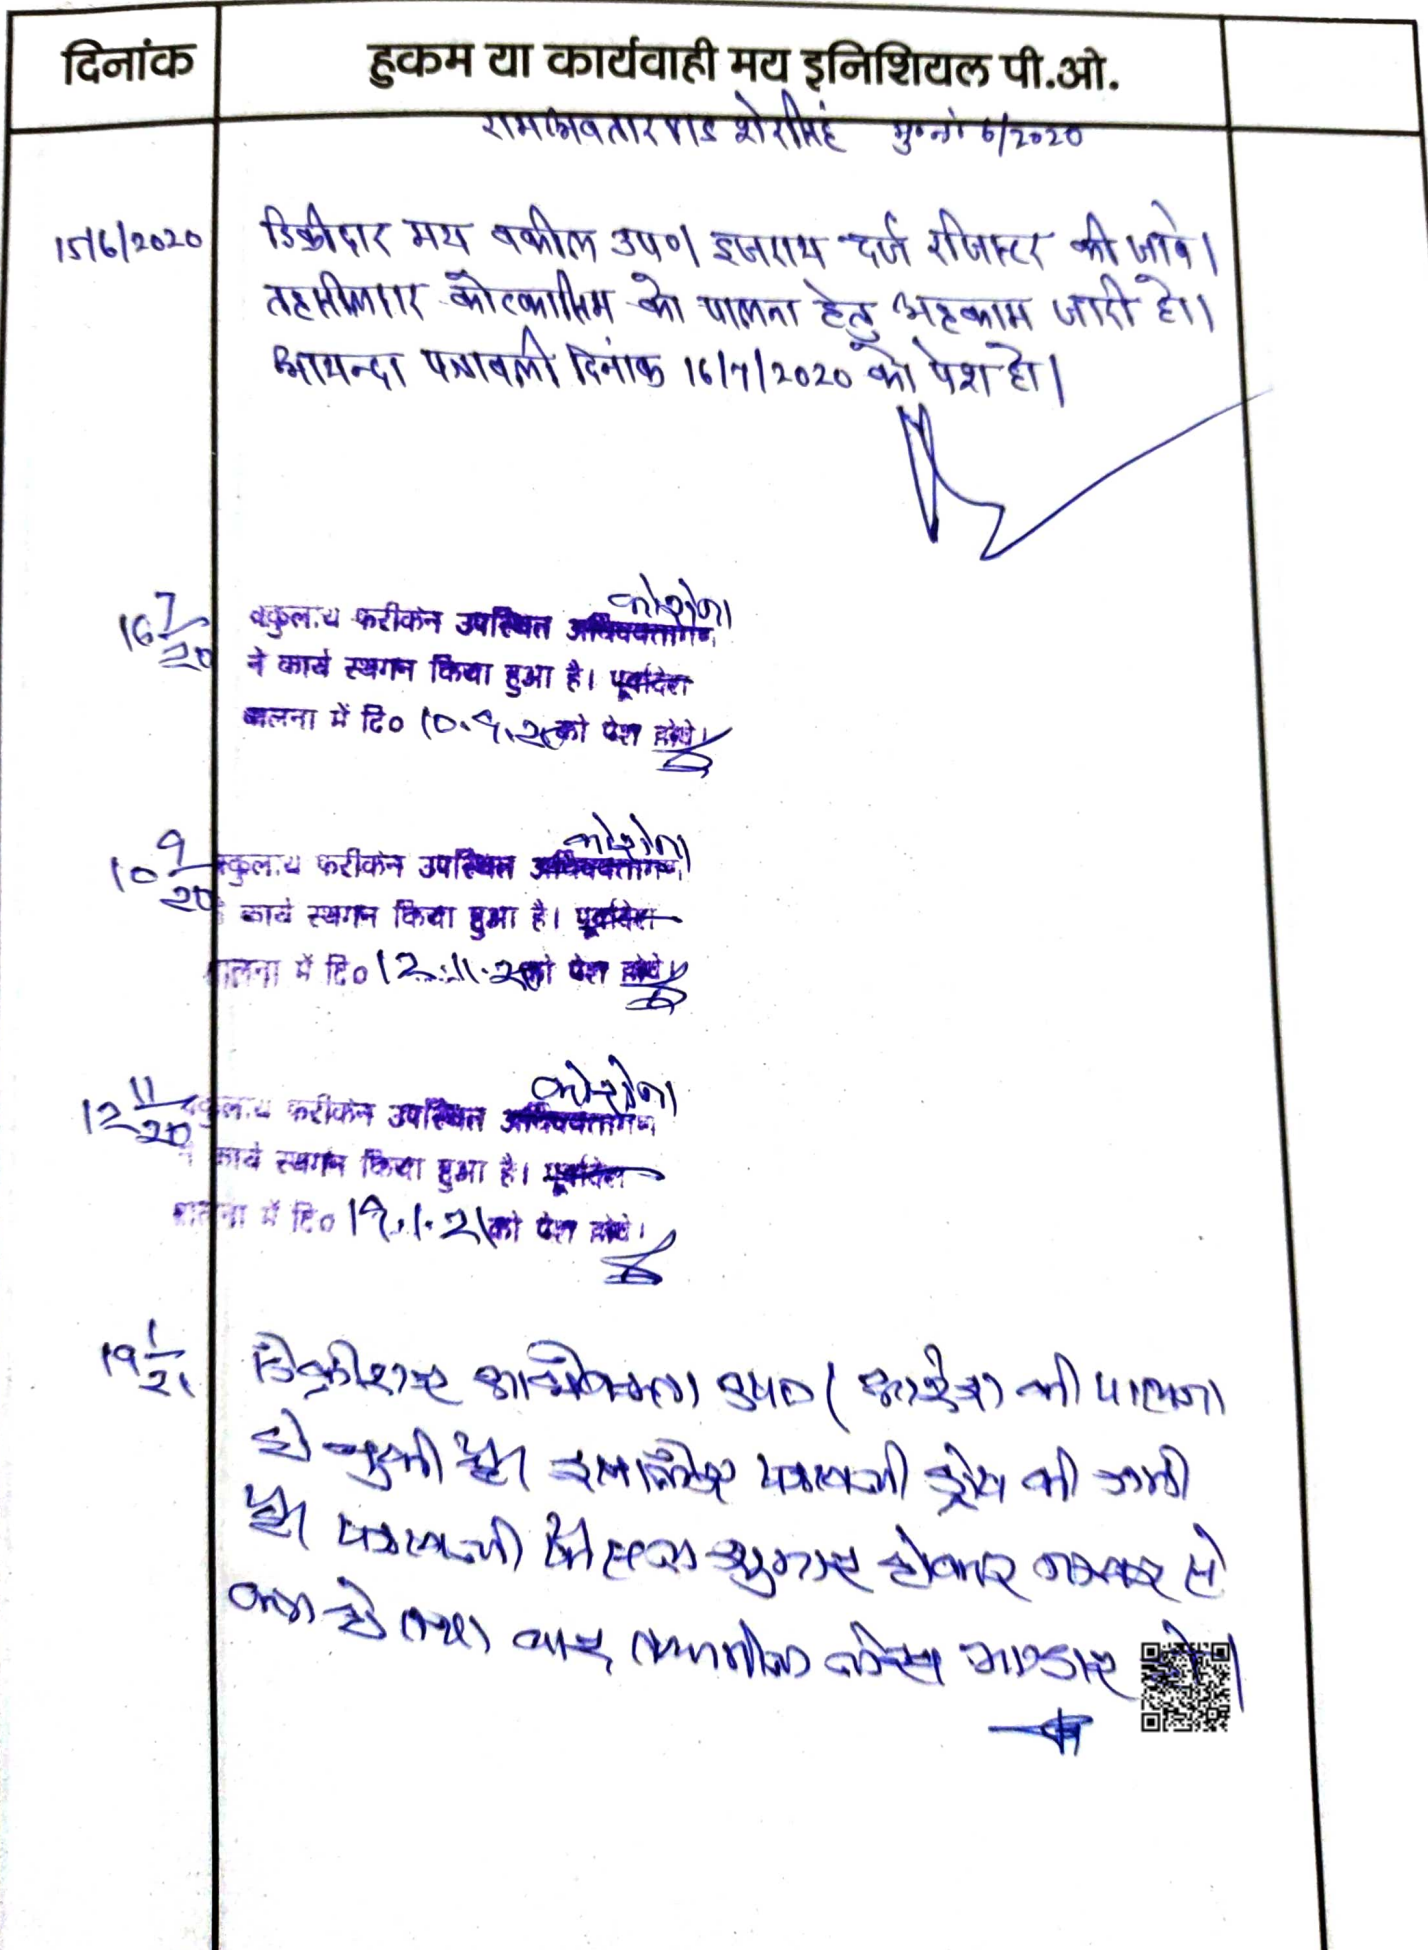 दिनांक
हुकम या कार्यवाही मय इनिशियल पी.ओ.
रामअवतार v/s शेरसिंह मु०नं० 6/2020
15/6/2020
डिक्रीदार मय वकील उप०। इजराय दर्ज रजिस्टर की जावे।
तहसीलदार कोटकासिम को पालना हेतु अहकाम जारी हो।
आयन्दा पत्रावली दिनांक 16/7/2020 को पेश हो।
16 7/20
कोरोना
वकुलाय फरीकेन उपस्थित अभिवक्तागण
ने कार्य स्थगन किया हुआ है। पूर्वादेश
पालना में दि० 10.9.20 को पेश होवे।
10 9/20
कोरोना
वकुलाय फरीकेन उपस्थित अभिवक्तागण
ने कार्य स्थगन किया हुआ है। पूर्वादेश
पालना में दि० 12.11.20 को पेश होवे।
12 11/20
कोरोना
वकुलाय फरीकेन उपस्थित अभिवक्तागण
ने कार्य स्थगन किया हुआ है। पूर्वादेश
पालना में दि० 19.1.21 को पेश होवे।
19 1/21
डिक्रीदार अभिभाषक उप०। आदेश की पालना
हो चुकी है। इसलिए पत्रावली ड्रोप की जाती
है। पत्रावली फैसल शुमार होकर नम्बर से
कम हो तथा बाद तकमील दाखिल हो।